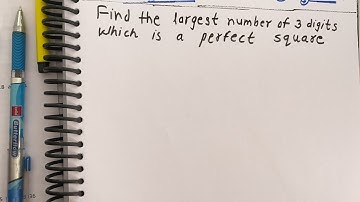 Find the largest number of 3 digits
which is a perfect square